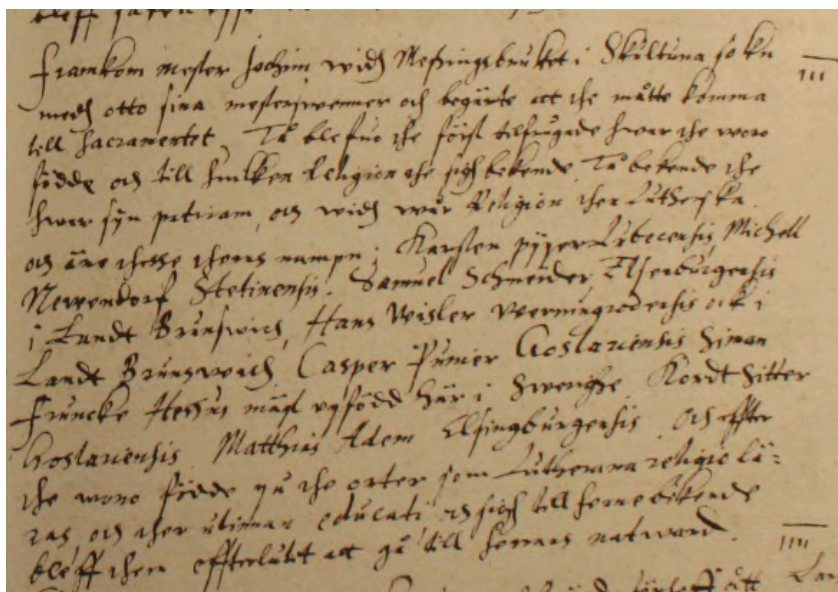 bleff
Framkom mester Jochim widh Messingsbruket i Skultuna sokn
III
medh otto sina mesterswenner och begärte att the måtte komma
till Sacramentet. Tå blefuo the först tilfrågade hwar the woro
födde och till huilken Religion the sigh bekende. Tå bekende the
hwar syn patriam, och widh wår Religion then Lutherska.
och äre thesse thens nampn: Karsten pijper Lubecensis, Michell
Newendorf Stetinensis. Samuel Schneider Elsenburgensis
i Landt Brunswich, Hans Wisler Werningrodensis ock i
Landt Brunswich. Casper Goslariensis Siman
Francke Hessus mäst upfödd här i Swerighe. Kordt Sitter
Goslariensis Matthias Adem Elsingburgensis. Och effter
the woro födde på the orter som Lutherana religio lä-
ras och ther utinnan educati och sigh till henne bekende
bleff them effterlåtit att gå till herrans natward.
IIII